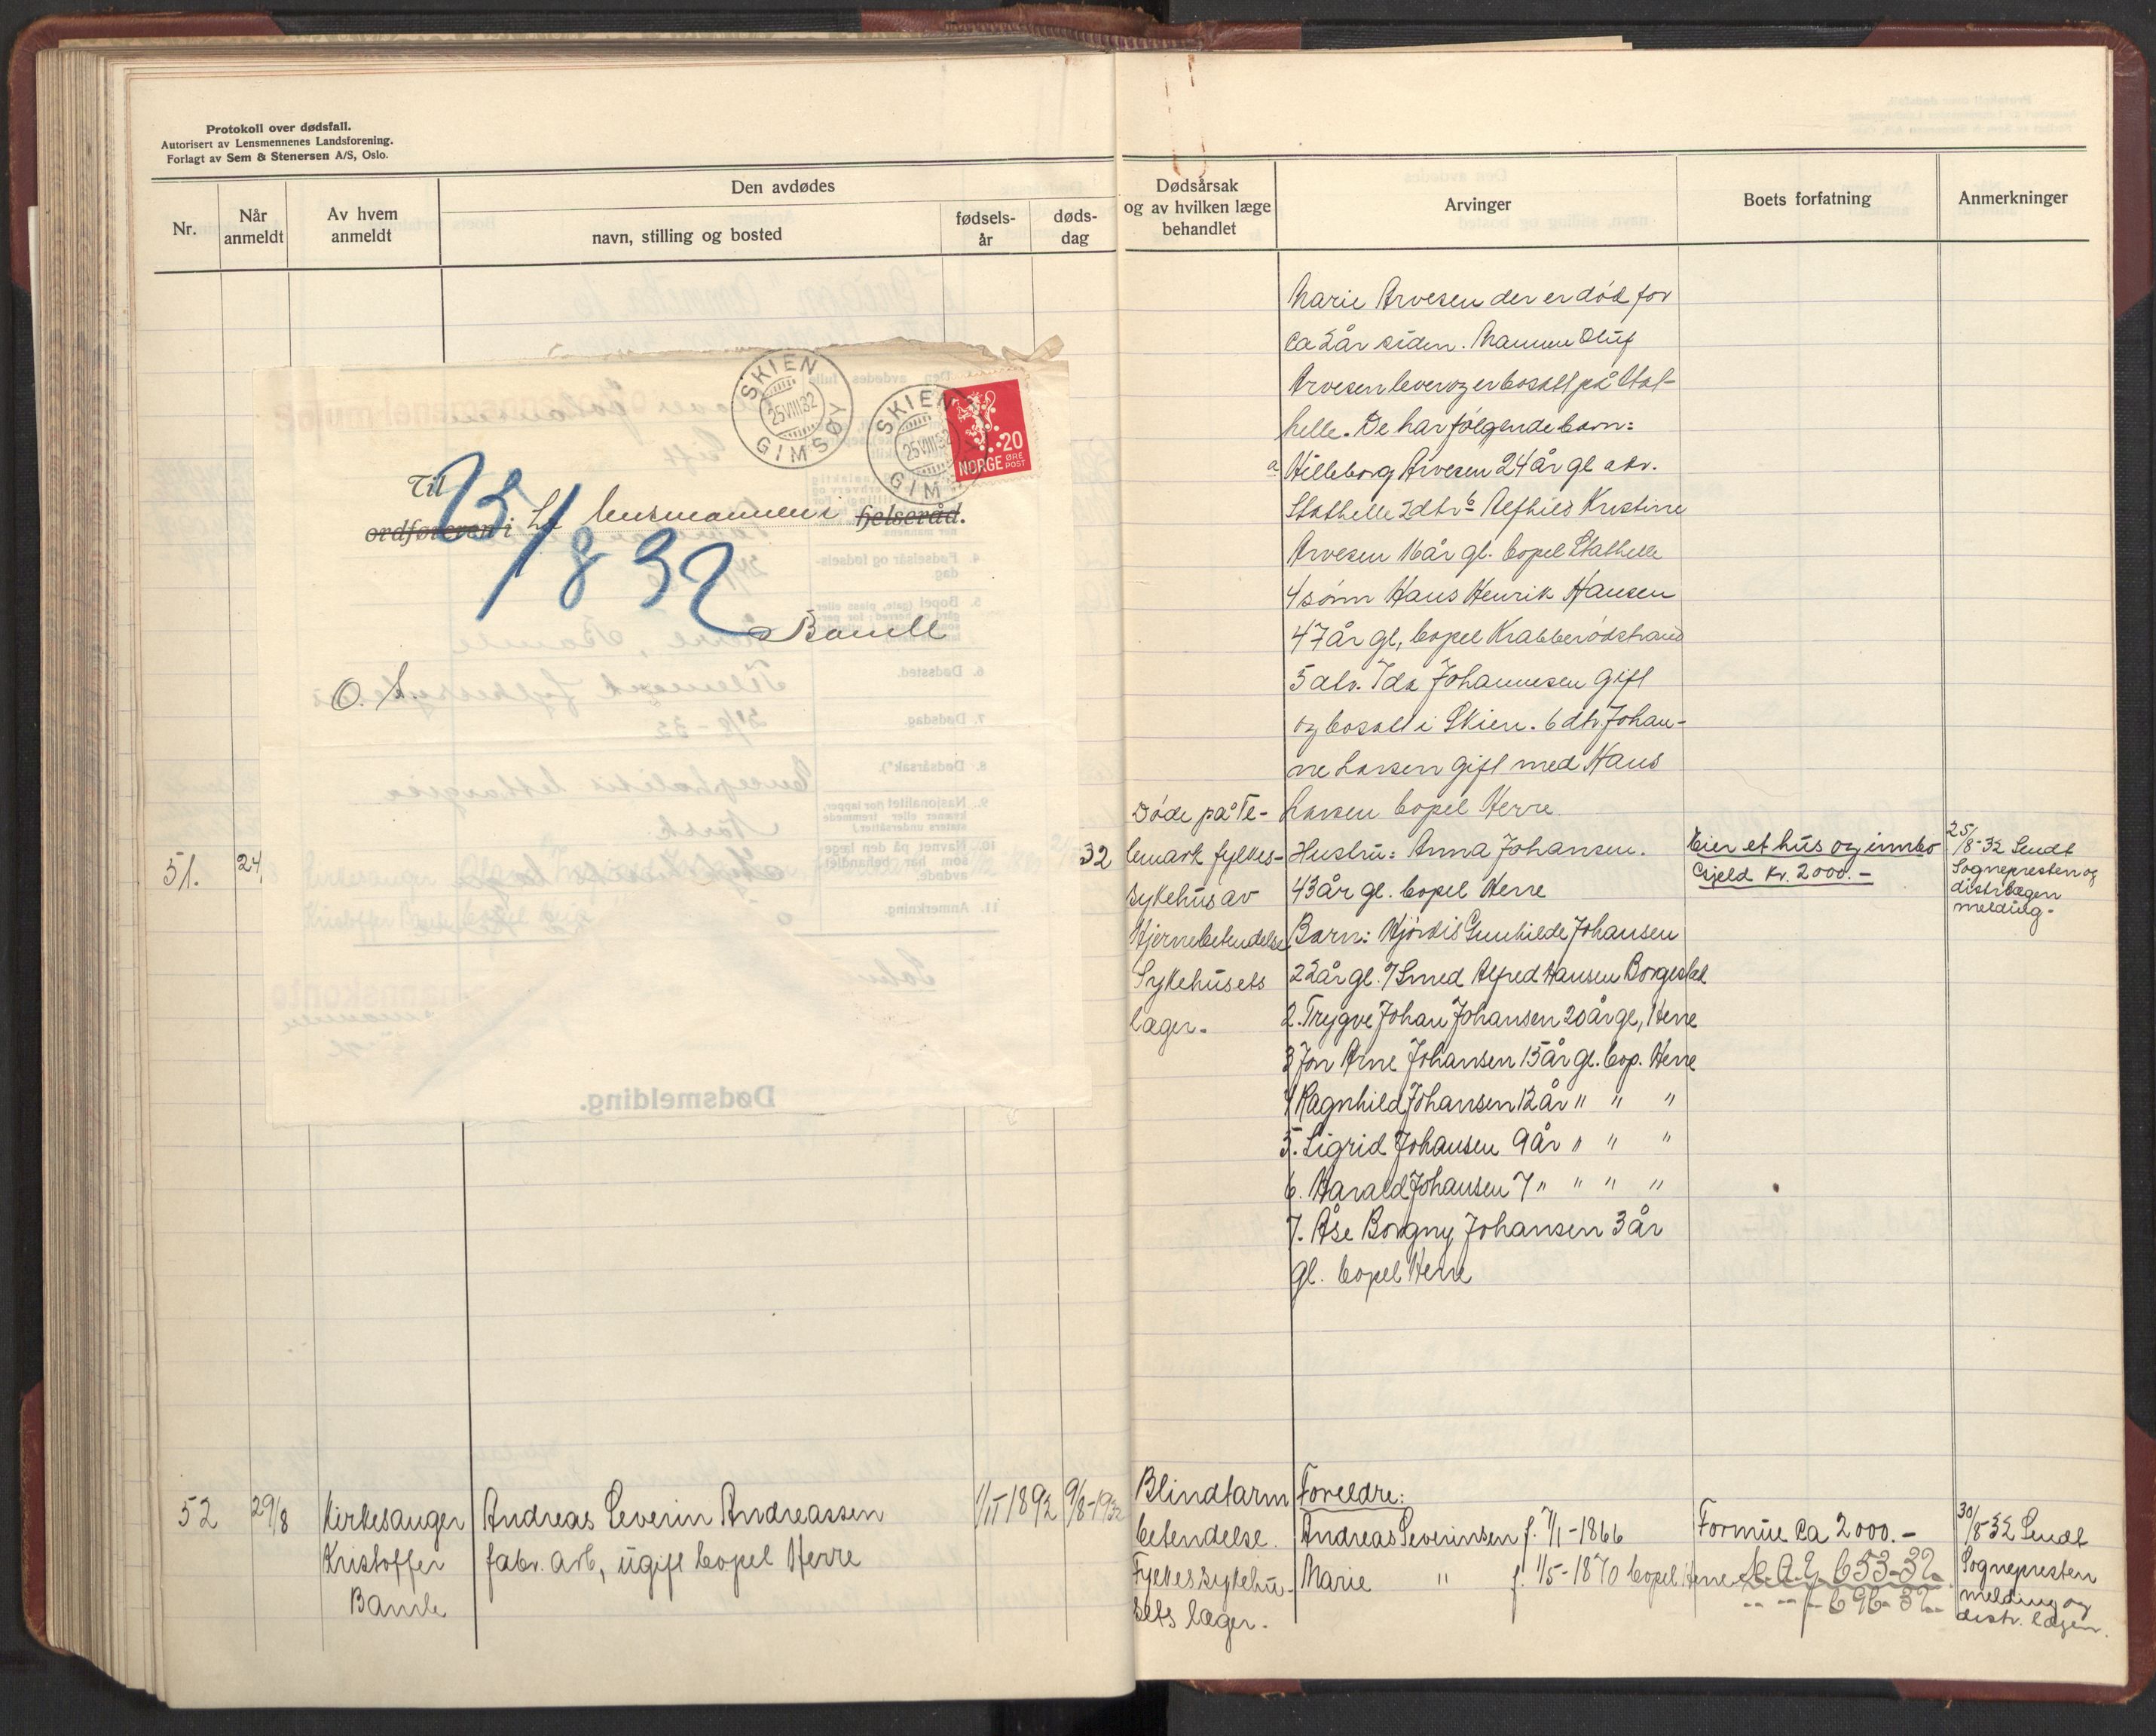 Protokoll over dødsfall.
Autorisert av Lensmennenes Landsforening.
Forlagt av Sem & Stenersen A/S, Oslo.
Nr.
Når
anmeldt
Av hvem
anmeldt
Den avdødes
navn, stilling og bosted
fødsels-
år
døds-
dag
Dødsårsak
og av hvilken læge
behandlet
Arvinger
Boets forfatning
Anmerkninger
Marie Arvesen der er død for
ca 2 år siden. Mannen Oluf
Arvesen lever og er bosatt på Stat-
helle. De har følgende barn:
a Hilleborg Arvesen 24 år gl adr.
Stathelle 2 dtr b Alfhild Kristine
Arvesen 16 år gl. bopel Stathelle
4 sønn Hans Henrik Hansen
47 år gl, bopel Krabberødstrand
5 dtr. Ida Johannesen gift
og bosatt i Skien. 6 dtr. Johan-
ne Larsen gift med Hans
Larsen bopel Herre.
SKIEN
25 VIII 32
GIMSØY
SKIEN
25 VIII 32
GIM
20
NORGE ØRE
POST
Til
ordføreren i lensmannen i helseråd.
25/8 32
Bamle
51.
24
32
Døde på Te-
lemark fylkes-
sykehus av
Hjernebetendelse
Sykehusets
læger.
Hustru: Anna Johansen.
43 år gl. bopel Herre
Barn: Hjørdis Gunhilde Johansen
22 år gl. g/ Smed Alfred Hansen Borgestad
2. Trygve Johan Johansen 20 år gl, Herre
3 Jon Arne Johansen 15 år gl. bop. Herre
4 Ragnhild Johansen 12 år " " "
5. Sigrid Johansen 9 år " " "
6. Harald Johansen 7 " " " "
7. Åse Borgny Johansen 3 år
gl. bopel Herre
Eier et hus og innbo
Gjeld kr. 2000.-
25/8-32 Sendt
Sognepresten og
distr.lægen
melding.
Dødsmelding.
52
29/8
Kirkesanger
Kristoffer
Bamle
Andreas Severin Andreassen
fabr. arb, ugift bopel Herre
1/11-1892
9/8-1932
Blindtarm
betendelse.
Fylkessykehu-
sets læger.
Foreldre:
Andreas Severinsen f. 7/1-1866
Marie " f. 1/5-1870 bopel Herre
Formue ca 2000.-
653-32
696-32
30/8-32 Sendt
Sognepresten
melding og
distr. lægen.